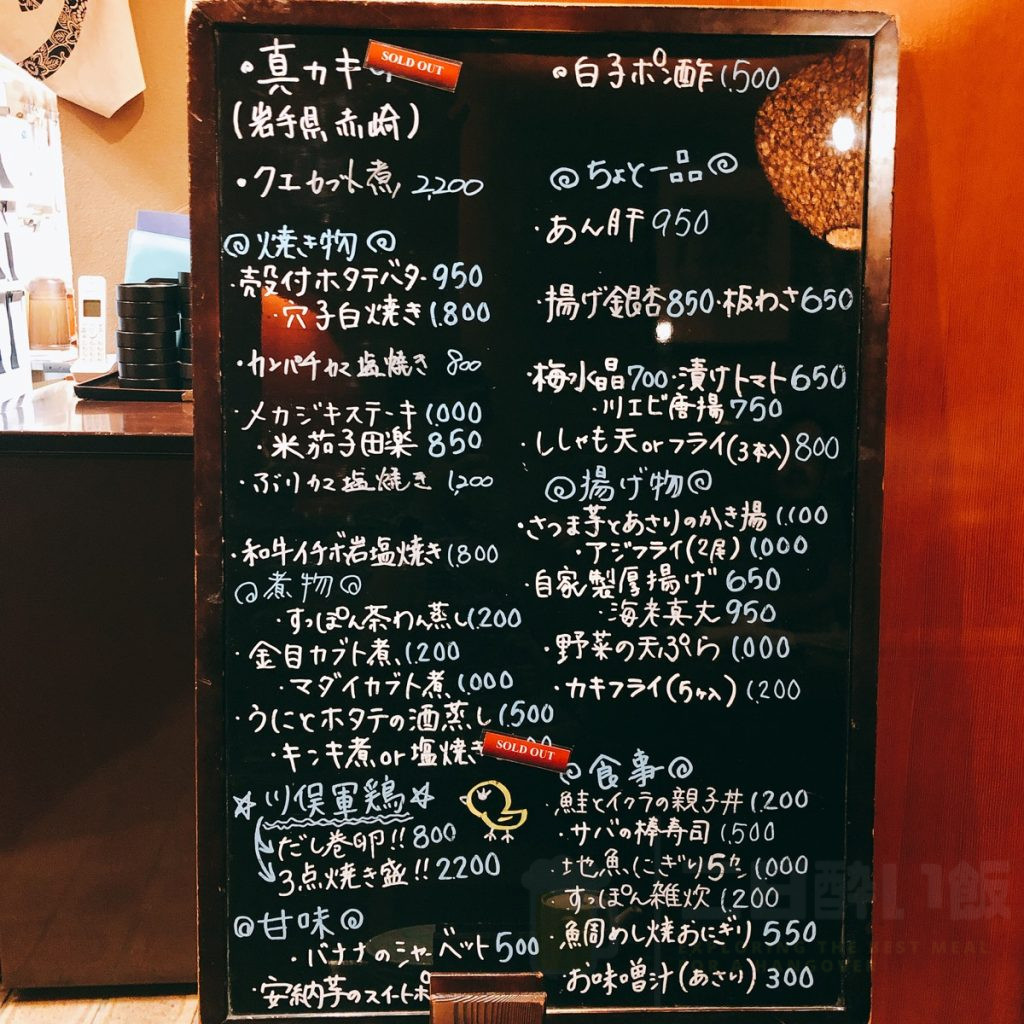 ・真カキ SOLD OUT
(岩手県 赤崎)
・クエカブト煮 2,200
◎焼き物◎
・殻付ホタテバター 950
・穴子白焼き 1.800
・カンパチカマ塩焼き 800
・メカジキステーキ 1.000
・米茄子田楽 850
・ぶりカマ塩焼き 1,200
・和牛イチボ岩塩焼き 1.800
◎煮物◎
すっぽん茶わん蒸し 1.200
・金目カブト煮 1.200
・マダイカブト煮 1.000
・うにとホタテの酒蒸し 1.500
・キンキ煮or塩焼き SOLD OUT
☆川俣軍鶏☆
だし巻卵!! 800
3点焼き盛!! 2200
◎甘味◎
・バナナのシャーベット 500
・安納芋のスイートポ
・白子ポン酢 1.500
◎ちょと一品◎
・あん肝 950
・揚げ銀杏 850 ・板わさ 650
・梅水晶 700 ・漬けトマト 650
・川エビ唐揚 750
・ししゃも天orフライ(3本入) 800
◎揚げ物◎
・さつま芋とあさりのかき揚 1.100
・アジフライ(2尾) 1.000
・自家製厚揚げ 650
・海老真丈 950
・野菜の天ぷら 1.000
・カキフライ(5ヶ入) 1.200
◎食事◎
・鮭とイクラの親子丼 1.200
・サバの棒寿司 1.500
・地魚にぎり5カン 1.000
・すっぽん雑炊 1.200
・鯛めし焼おにぎり 550
・お味噌汁(あさり) 300